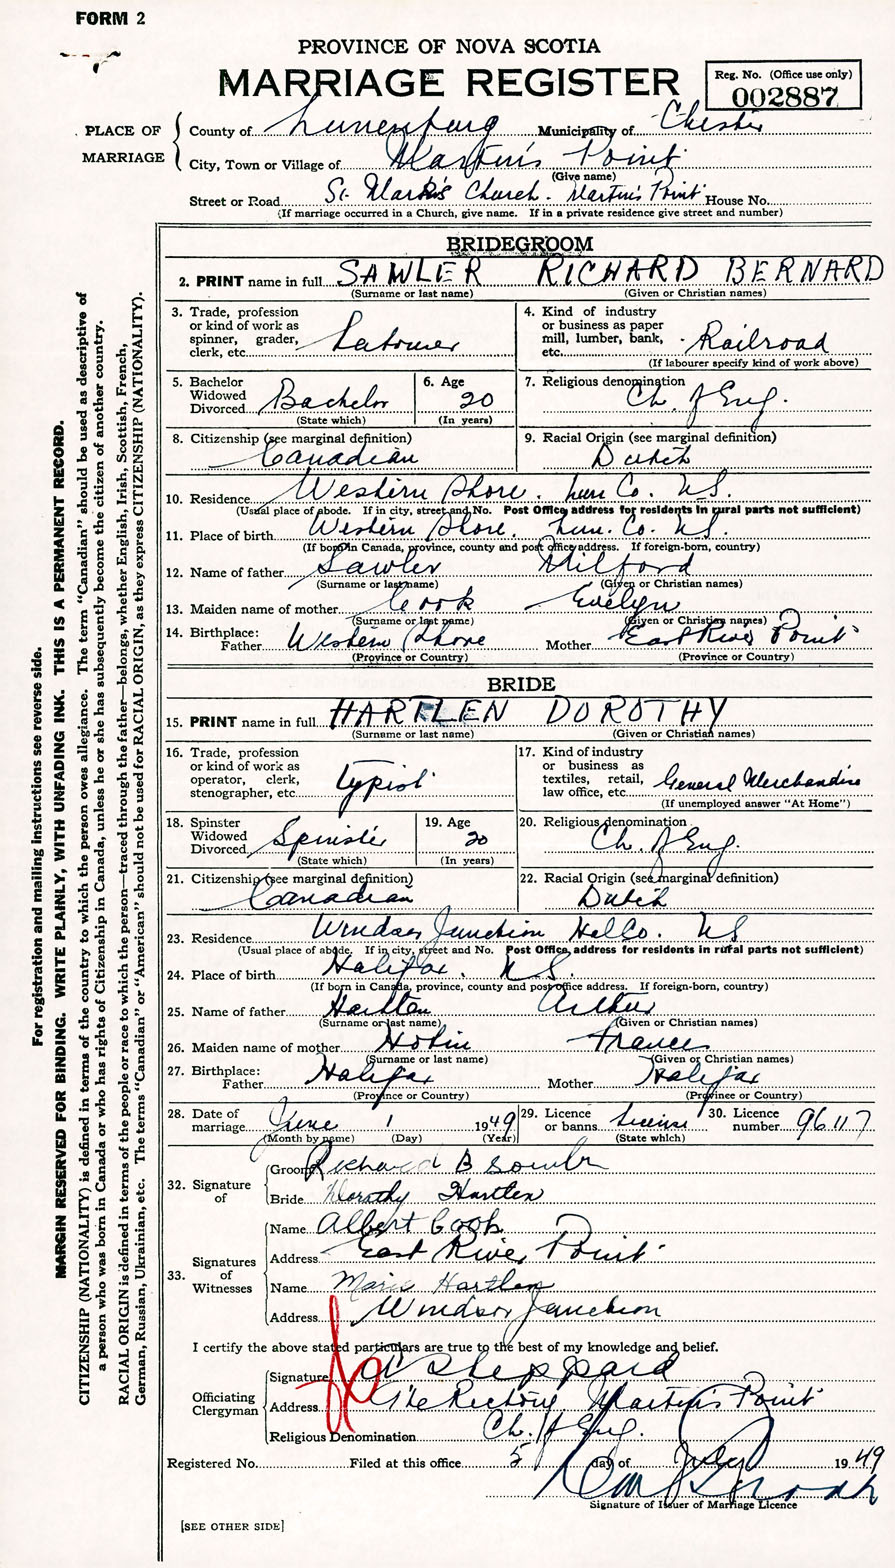 FORM 2
PROVINCE OF NOVA SCOTIA
MARRIAGE REGISTER
Reg. No. (Office use only)
002887
PLACE OF MARRIAGE
County of Lunenburg Municipality of Chester
City, Town or Village of Martin's Point
(Give name)
Street or Road St. Mark's Church. Martin's Point House No.
(If marriage occurred in a Church, give name. If in a private residence give street and number)
BRIDEGROOM
2. PRINT name in full SAWLER RICHARD BERNARD
(Surname or last name) (Given or Christian names)
3. Trade, profession or kind of work as spinner, grader, clerk, etc. Labourer
4. Kind of industry or business as paper mill, lumber, bank, etc. Railroad
(If labourer specify kind of work above)
5. Bachelor Widowed Divorced Bachelor
(State which)
6. Age 20
(In years)
7. Religious denomination Ch. of Eng.
8. Citizenship (see marginal definition) Canadian
9. Racial Origin (see marginal definition) Dutch
10. Residence Western Shore. Lun Co. N.S.
(Usual place of abode. If in city, street and No. Post Office address for residents in rural parts not sufficient)
11. Place of birth Western Shore. Lun. Co. N.S.
(If born in Canada, province, county and post office address. If foreign-born, country)
12. Name of father Sawler Milford
(Surname or last name) (Given or Christian names)
13. Maiden name of mother Cook Evelyn
(Surname or last name) (Given or Christian names)
14. Birthplace: Father Western Shore Mother East River Point
(Province or Country) (Province or Country)
BRIDE
15. PRINT name in full HARTLEN DOROTHY
(Surname or last name) (Given or Christian names)
16. Trade, profession or kind of work as operator, clerk, stenographer, etc. Typist
17. Kind of industry or business as textiles, retail, law office, etc. General Merchandise
(If unemployed answer "At Home")
18. Spinster Widowed Divorced Spinster
(State which)
19. Age 20
(In years)
20. Religious denomination Ch. of Eng.
21. Citizenship (see marginal definition) Canadian
22. Racial Origin (see marginal definition) Dutch
23. Residence Windsor Junction Hal Co. N.S
(Usual place of abode. If in city, street and No. Post Office address for residents in rural parts not sufficient)
24. Place of birth Halifax. N.S.
(If born in Canada, province, county and post office address. If foreign-born, country)
25. Name of father Hartlen Arthur
(Surname or last name) (Given or Christian names)
26. Maiden name of mother Hobin Frances
(Surname or last name) (Given or Christian names)
27. Birthplace: Father Halifax Mother Halifax
(Province or Country) (Province or Country)
28. Date of marriage June 1 1949
(Month by name) (Day) (Year)
29. Licence or banns License
(State which)
30. Licence number 96117
32. Signature of
Groom Richard B Sawler
Bride Dorothy Hartlen
33. Signatures of Witnesses
Name Albert Cook
Address East River Point
Name Marie Hartlen
Address Windsor Junction
I certify the above stated particulars are true to the best of my knowledge and belief.
Officiating Clergyman
Signature Sheppard
Address The Rectory Martin's Point
Religious Denomination Ch. of Eng.
Registered No. Filed at this office 5 day of July 1949
Signature of Issuer of Marriage Licence
[SEE OTHER SIDE]
For registration and mailing instructions see reverse side.
MARGIN RESERVED FOR BINDING. WRITE PLAINLY, WITH UNFADING INK. THIS IS A PERMANENT RECORD.
CITIZENSHIP (NATIONALITY) is defined in terms of the country to which the person owes allegiance. The term "Canadian" should be used as descriptive of
a person who was born in Canada or who has rights of Citizenship in Canada, unless he or she has subsequently become the citizen of another country.
RACIAL ORIGIN is defined in terms of the people or race to which the person—traced through the father—belongs, whether English, Irish, Scottish, French,
German, Russian, Ukrainian, etc. The terms "Canadian" or "American" should not be used for RACIAL ORIGIN, as they express CITIZENSHIP (NATIONALITY).